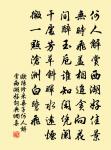 何人解賞西湖好佳景
無時飛蓋相追貪向花
間醉玉卮誰知閑憑闌
干處芳草斜暉水遠煙
微一點滄洲白鷺飛
歐陽修采桑子何人解
賞西湖好